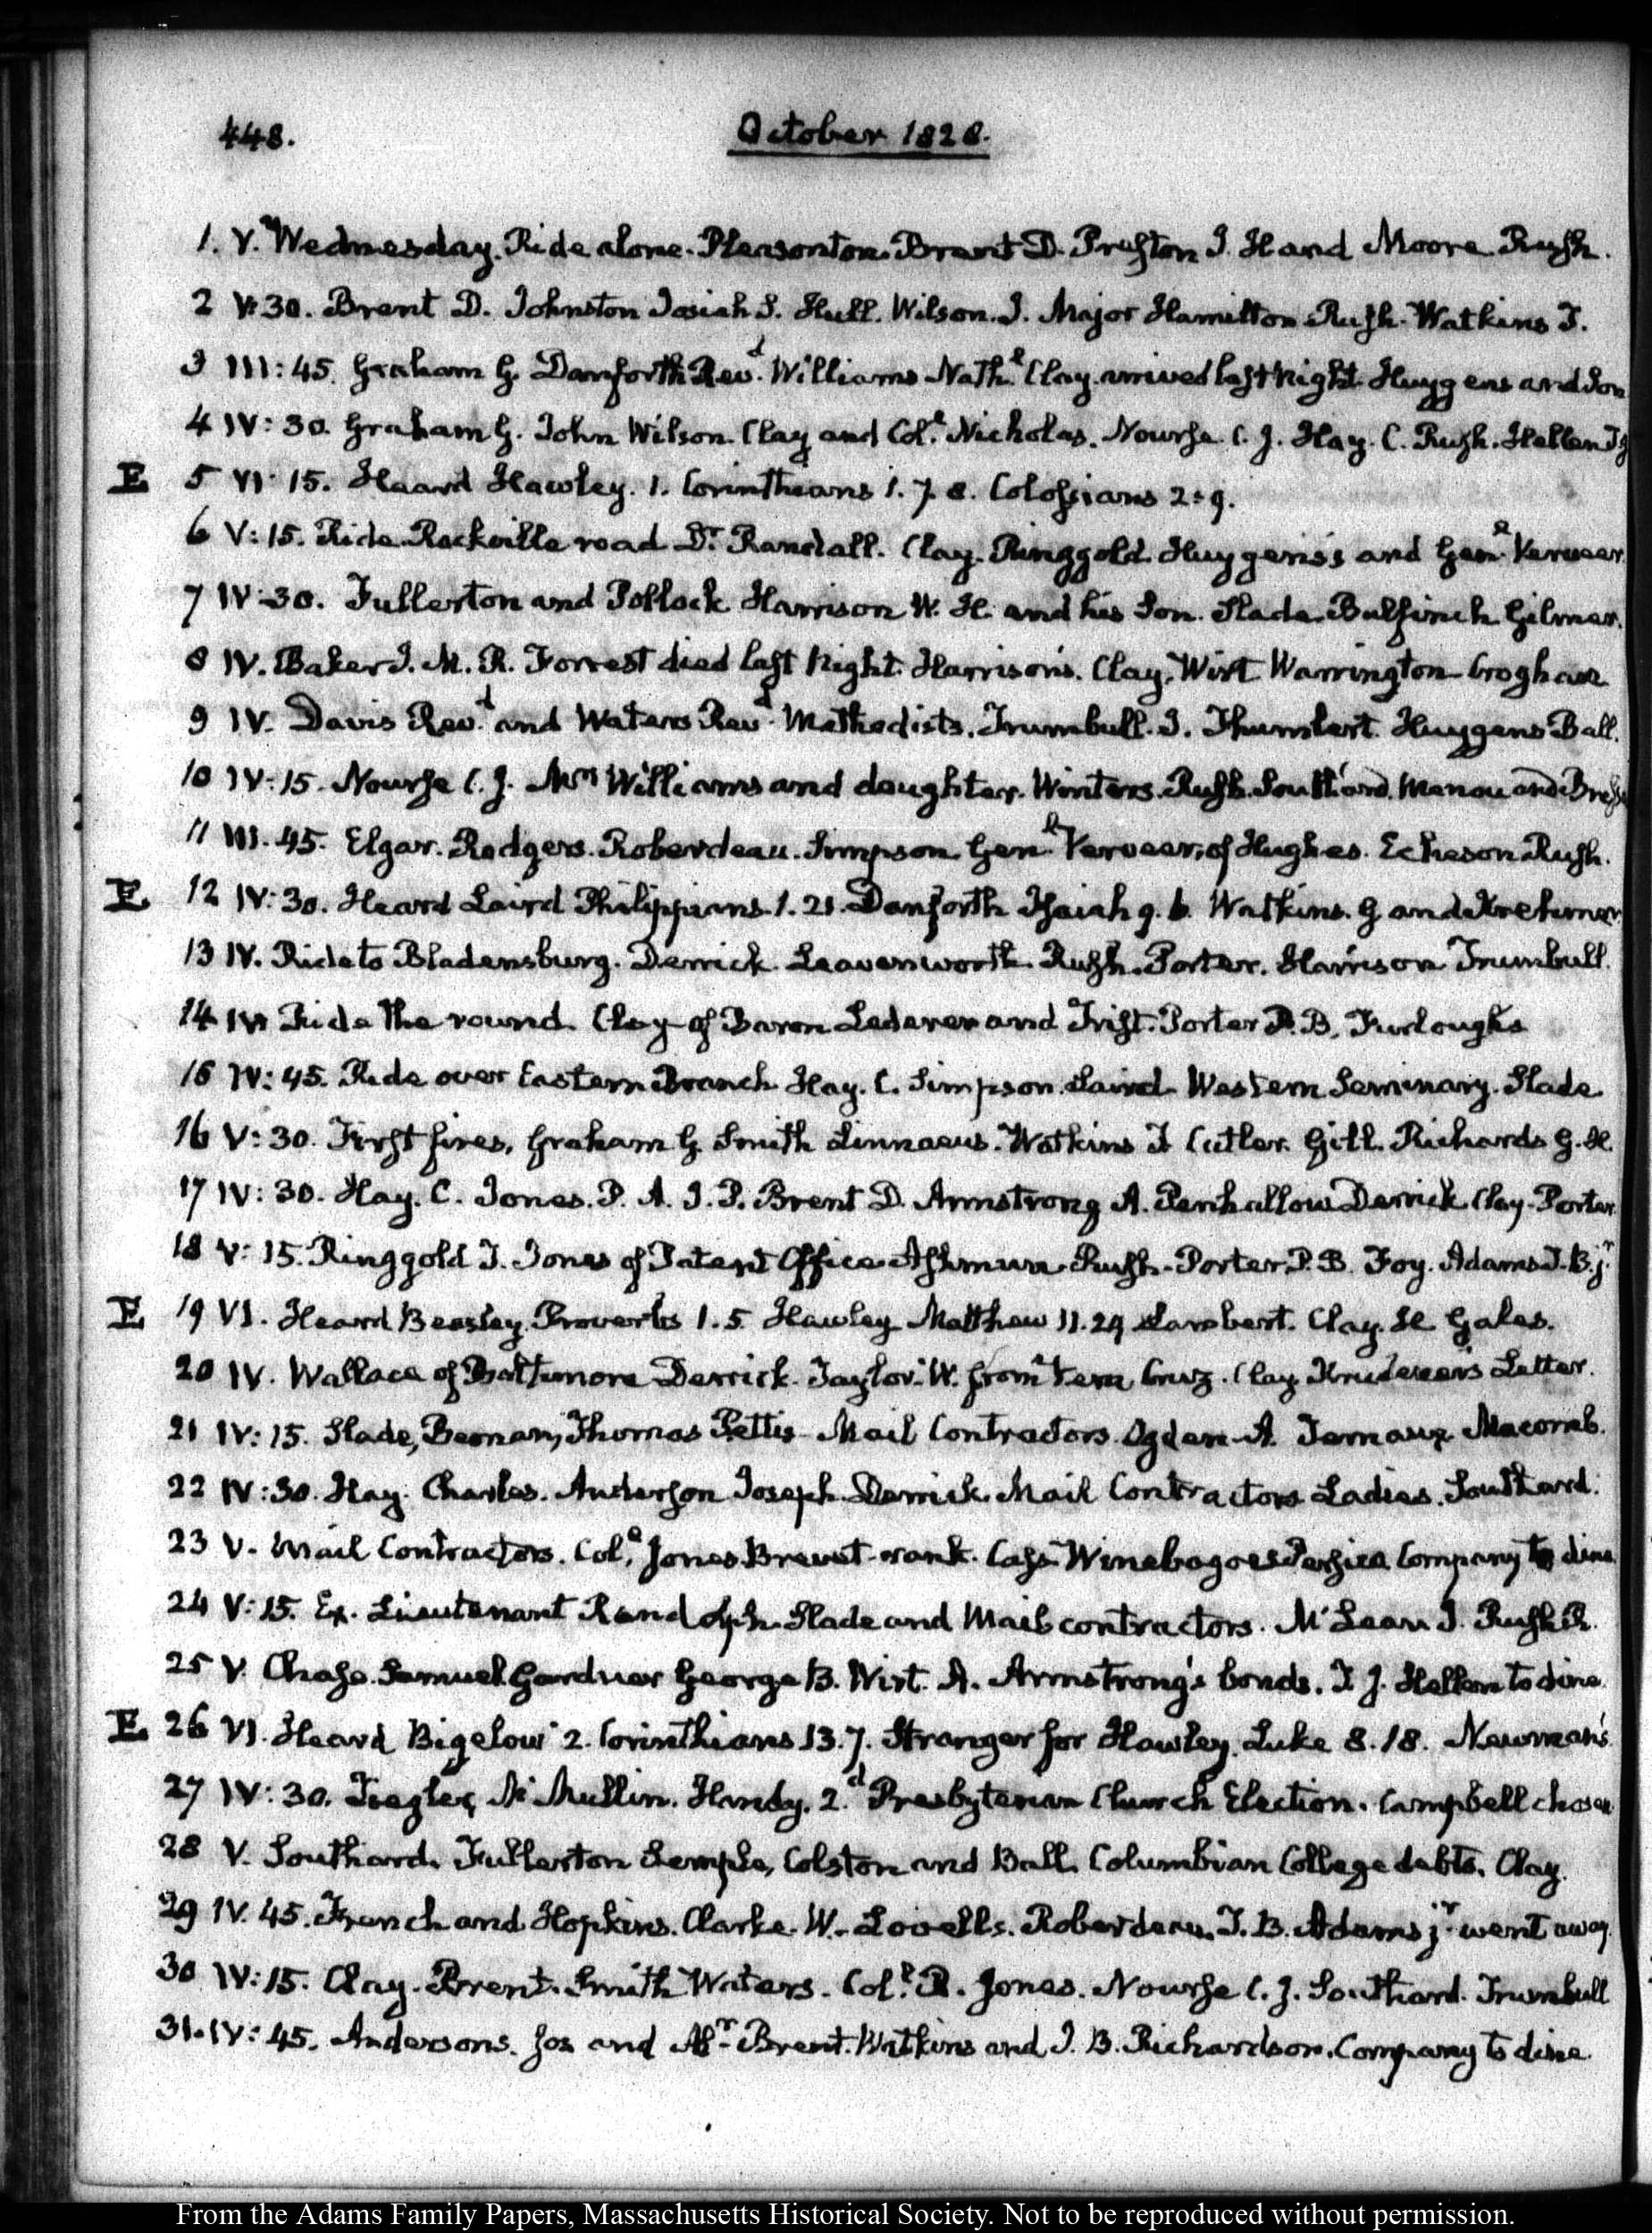 448. October 1828.
1. V. Wednesday. Ride alone. Pleasonton. Brent D. Preston I. H and Moore Rush.
2 V:30. Brent D. Johnston Josiah S. Hull. Wilson. J. Major Hamilton Rush. Watkins T.
3 III:45. Graham G. Danforth Revd. Williams Nathl. Clay arrived last Night. Huygens and Son
4 IV:30. Graham G. John Wilson. Clay and Coll. Nicholas. Nourse C. J. Hay. C. Rush. Hellen
E 5 VI:15. Heard Hawley. 1. Corinthians 1. 7. 8. Colossians 2:9.
6 V:15. Ride Rockville road Dr. Randall. Clay. Ringgold. Huygens's and Genl. Verveer
7 IV:30. Fullerton and Pollock Harrison W. H. and his Son. Slade. Bulfinch Gilmer.
8 IV. Baker J. M. R. Forrest died last Night. Harrison's. Clay. Wirt Warrington Croghan
9 IV. Davis Revd. and Waters Revd. Methodists. Trumbull. J. Huygens Ball.
10 IV:15. Nourse C. J. Mrs Williams and daughter. Winters. Rush. Southard. Menou and
11 III.45. Elgar. Rodgers. Roberdeau. Simpson. Genl. Verveer, of Hughes. Echeson Rush.
E 12 IV:30. Heard Laird Philippians. 1. 21. Danforth Isaiah 9. 6. Watkins. G and
13 IV. Ride to Bladensburg. Derrick. Leavenworth. Rush. Porter. Harrison Trumbull.
14 IV Ride the round. Clay of Baron Lederer and Trist. Porter P. B. Furloughs
15 IV:45. Ride over Eastern Branch Hay. C. Simpson. Laird Western Seminary. Slade
16 V:30. First fires. Graham G. Smith Linnaeus. Watkins T Cutler. Gill. Richards G. H.
17 IV:30. Hay. C. Jones. P. A. J. P. Brent D. Armstrong A. Penhallow Derrick. Clay. Porter
18 V:15. Ringgold T. Jones of Patent Office Ashmun Rush. Porter P. B. Foy. Adams J. B. jr
E 19 VI. Heard Beasley. Proverbs 1. 5. Hawley Matthew 11. 29 Lambert. Clay. H Gales.
20 IV. Wallace of Baltimore Derrick. Taylor. W. from Vera Cruz. Clay. Krudener's Letter.
21 IV:15. Slade, Thomas Pettis Mail Contractors. Ogden A. Ternaux Macomb.
22 IV:30. Hay. Charles. Anderson Joseph. Derrick. Mail Contractors Ladies. Southard.
23 V. Mail Contractors. Coll. Jones Brevet rank. Cass Winebagoes Persico Company to dine
24 V:15. Ex. Lieutenant Randolph. Slade and Mail contractors. McLean J. Rush R.
25 V. Chase. Samuel Gardner George B. Wirt. A. Armstrong's bonds. T J. Hellen to dine.
E 26 VI. Heard Bigelow 2. Corinthians 13. 7. Stranger for Hawley. Luke 8. 18. Newman's
27 IV:30. McMullin. Handy. 2.d Presbyterian Church Election. Campbell chosen
28 V. Southard. Fullerton Semple, Colston and Ball. Columbian College debts. Clay.
29 IV. 45. French and Hopkins. Clarke. W. Lovells. Roberdeau. J. B. Adams jr. went away
30 IV:15. Clay. Brent. Smith Waters. Coll. R. Jones. Nourse C. J. Southard. Trumbull
31. IV:45. Andersons. Jos and Brent. Watkins and J. B. Richardson. Company to dine
From the Adams Family Papers, Massachusetts Historical Society. Not to be reproduced without permission.